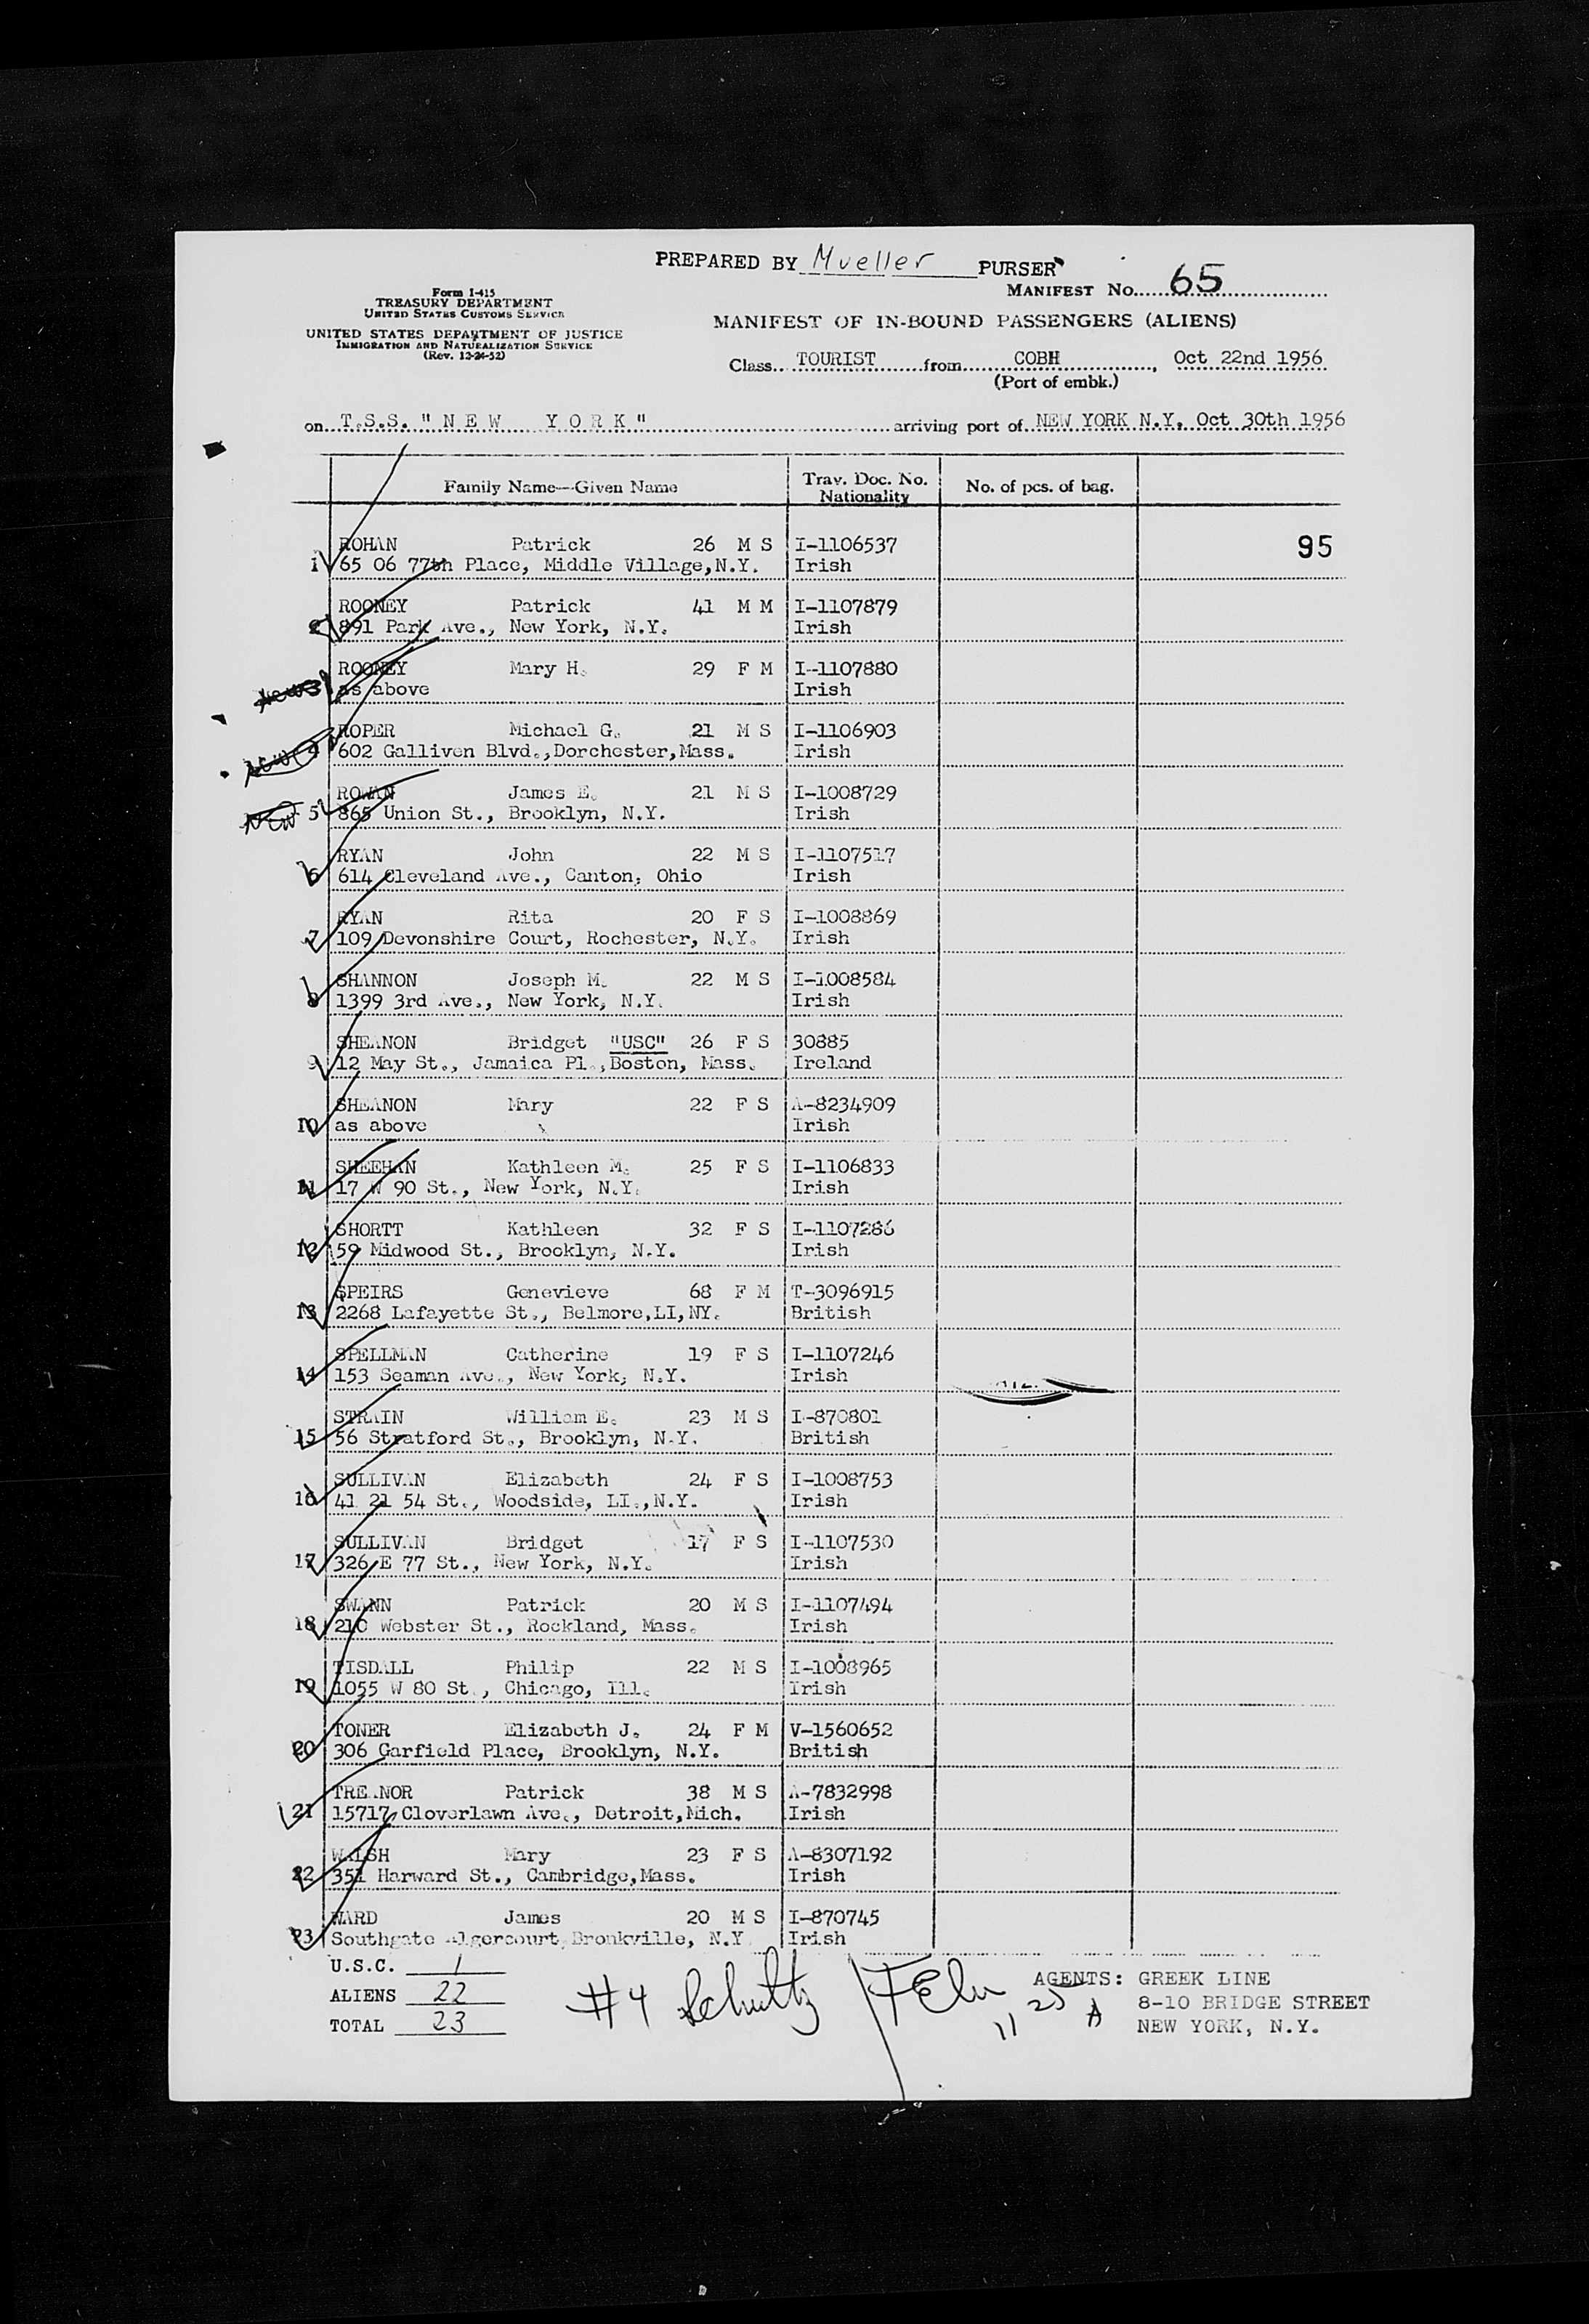 PREPARED BY Mueller PURSER
MANIFEST No. 65
Form I-415
TREASURY DEPARTMENT
UNITED STATES CUSTOMS SERVICE
UNITED STATES DEPARTMENT OF JUSTICE
IMMIGRATION AND NATURALIZATION SERVICE
(Rev. 12-24-52)
MANIFEST OF IN-BOUND PASSENGERS (ALIENS)
Class TOURIST from COBH, Oct 22nd 1956
(Port of embk.)
on T.S.S. "NEW YORK" arriving port of NEW YORK N.Y. Oct 30th 1956
Family Name—Given Name Trav. Doc. No. Nationality No. of pcs. of bag.
95
ROHAN Patrick 26 M S I-1106537
1 65 06 77th Place, Middle Village,N.Y. Irish
ROONEY Patrick 41 M M I-1107879
2 891 Park Ave., New York, N.Y. Irish
ROONEY Mary H. 29 F M I-1107880
3 as above Irish
ROPER Michael G. 21 M S I-1106903
4 602 Galliven Blvd.,Dorchester,Mass. Irish
ROWAN James E. 21 M S I-1008729
New 5 865 Union St., Brooklyn, N.Y. Irish
RYAN John 22 M S I-1107517
6 614 Cleveland Ave., Canton, Ohio Irish
RYAN Rita 20 F S I-1008869
7 109 Devonshire Court, Rochester, N.Y. Irish
SHANNON Joseph M. 22 M S I-1008584
8 1399 3rd Ave., New York, N.Y. Irish
SHEANON Bridget "USC" 26 F S 30885
9 12 May St., Jamaica Pl.,Boston, Mass. Ireland
SHEANON Mary 22 F S A-8234909
10 as above Irish
SHEEHAN Kathleen M. 25 F S I-1106833
11 17 W 90 St., New York, N.Y. Irish
SHORTT Kathleen 32 F S I-1107286
12 59 Midwood St., Brooklyn, N.Y. Irish
SPEIRS Genevieve 68 F M T-3096915
13 2268 Lafayette St., Belmore,LI,NY. British
SPELLMAN Catherine 19 F S I-1107246
14 153 Seaman Ave., New York, N.Y. Irish
STRAIN William E. 23 M S I-870801
15 56 Stratford St., Brooklyn, N.Y. British
SULLIVAN Elizabeth 24 F S I-1008753
16 41 21 54 St., Woodside, LI.,N.Y. Irish
SULLIVAN Bridget 17 F S I-1107530
17 326 E 77 St., New York, N.Y. Irish
SWANN Patrick 20 M S I-1107494
18 210 Webster St., Rockland, Mass. Irish
TISDALL Philip 22 M S I-1008965
19 1055 W 80 St., Chicago, Ill. Irish
TONER Elizabeth J. 24 F M V-1560652
20 306 Garfield Place, Brooklyn, N.Y. British
TREANOR Patrick 38 M S A-7832998
21 15717 Cloverlawn Ave., Detroit,Mich. Irish
WALSH Mary 23 F S A-8307192
22 351 Harward St., Cambridge,Mass. Irish
WARD James 20 M S I-870745
23 Southgate Algercourt, Bronkville, N.Y. Irish
U.S.C. 1
ALIENS 22
TOTAL 23
#4 Schultz
11 25 A
AGENTS: GREEK LINE
8-10 BRIDGE STREET
NEW YORK, N.Y.